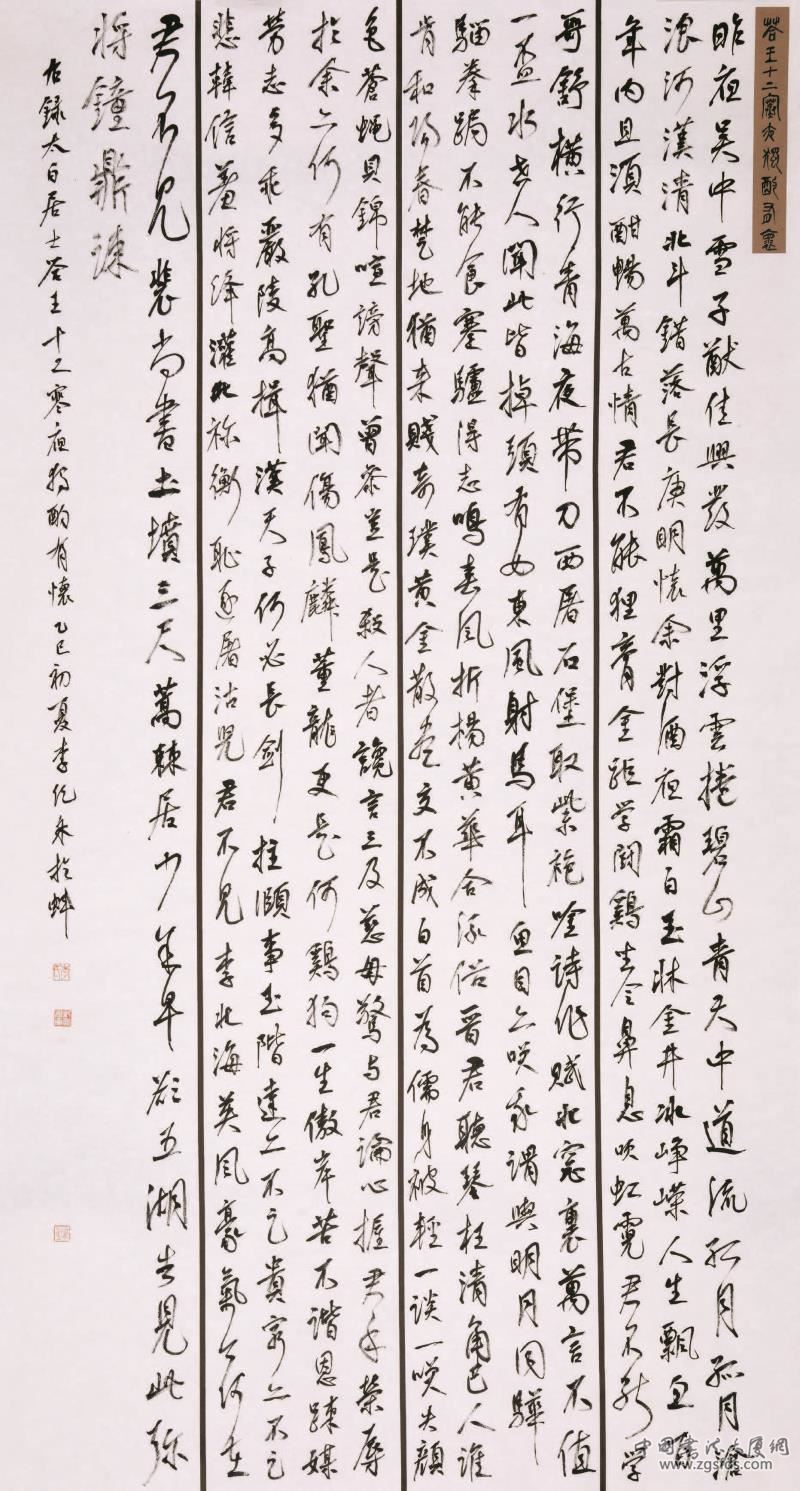 答王十二寒夜獨酌有懷
昨夜吴中雪子猷佳興發萬里浮雲捲碧山青天中道流孤月孤月滄
浪河漢清北斗錯落長庚明懷余對酒夜霜白玉牀金井冰崢嶸人生飄忽百
年内且須酣暢萬古情君不能狸膏金距学鬪鷄坐令鼻息吹虹霓君不能学
哥舒横行青海夜带刀西屠石堡取紫袍吟詩作賦北窓裏萬言不值
一盃水世人聞此皆掉頭有如東風射馬耳魚目亦咲我謂與明月同驊
騮拳跼不能食蹇驢得志鳴春風折楊黄華合流俗晋君聽琴枉清角巴人誰
肯和陽春楚地猶来賤奇璞黄金散尽交不成白首為儒身被輕一談一咲失顔
色蒼蝇貝錦喧謗聲曾参豈是殺人者讒言三及慈母驚与君論心握君手榮辱
於余亦何有孔聖猶聞傷鳳麟董龍更是何鷄狗一生傲岸苦不諧恩踈媒
劳志多乖嚴陵高揖漢天子何必長剣拄頤事玉階達亦不足貴窮亦不足
悲韓信羞将绛灌比祢衡耻逐屠沽兒君不見李北海英風豪氣今何在
君不見裴尚書土墳三尺蒿棘居少年早欲五湖去見此弥
将鐘鼎踈
右録太白居士答王十二寒夜独酌有懷乙巳初夏李於蚌
中国书法大厦網
www.zgsfds.com